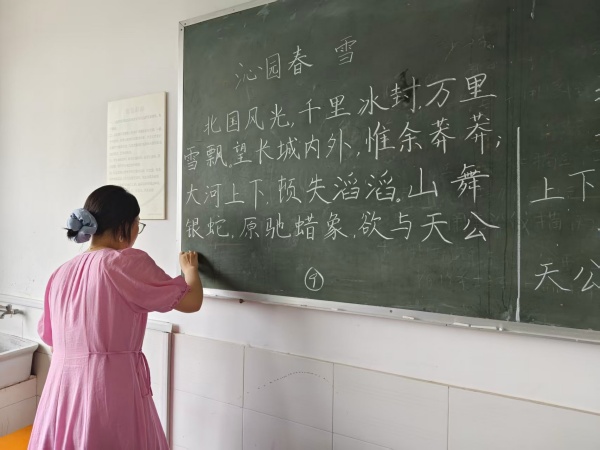 沁园春 雪
北国风光,千里冰封,万里
雪飘,望长城内外,惟余莽莽;
大河上下,顿失滔滔。山舞
银蛇,原驰蜡象,欲与天公
上下
天公